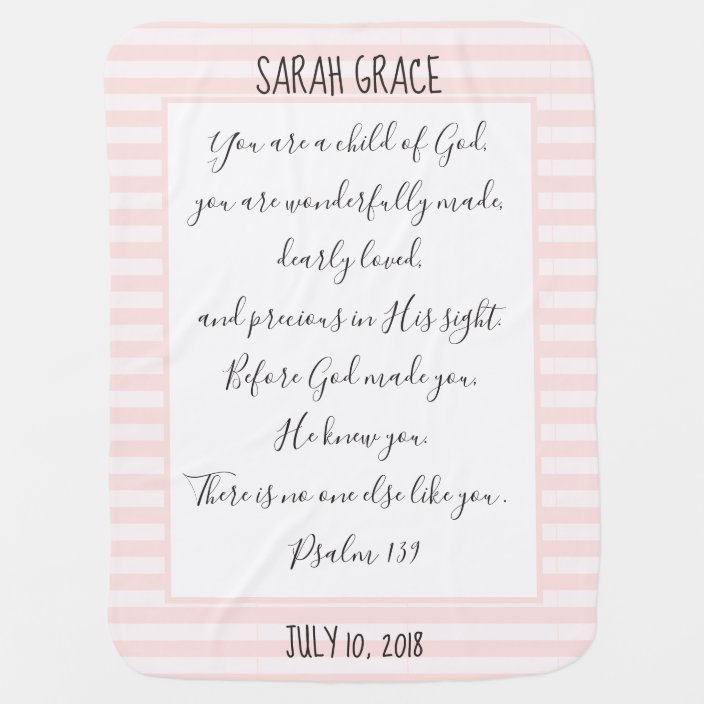 SARAH GRACE
You are a child of God,
you are wonderfully made,
dearly loved,
and precious in His sight.
Before God made you,
He knew you.
There is no one else like you.
Psalm 139
JULY 10, 2018